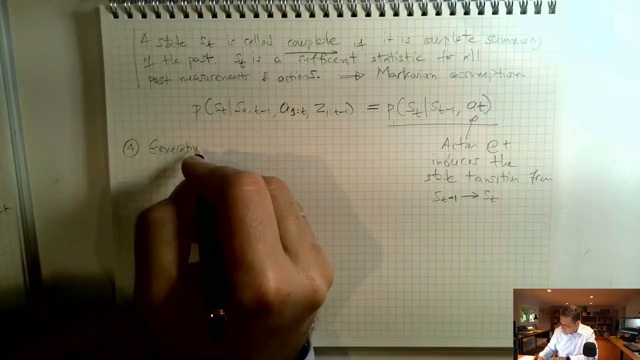 A state St is called complete if it is complete summary
of the past St is a sufficient statistic for all
past measurements & actions. ⟹ Markovian assumption
p(St | S0:t-1, a1:t, Z1:t-1) = p(St | St-1, at)
Action @ t
induces the
state transition from
St-1 → St
④ Generativ